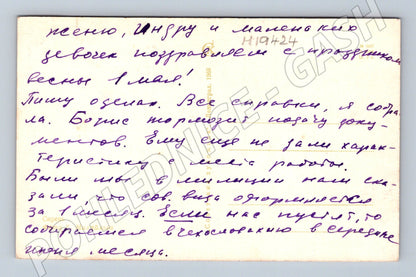 жено, Индру и маленьких
девочек поздравляем с праздником
весны 1 мая!
Пишу о делах. Все справки, я собра-
ла. Борис тормозит подачу доку-
ментов. Ему еще не дали харак-
теристику с места работы.
Были мы в милиции нам ска-
зали, что сов. виза оформляется
за 1 месяц. Если нас пустят, то
собираемся в Чехословакию в середине
июня месяца.
H19424
POHLEDNICE - GASH